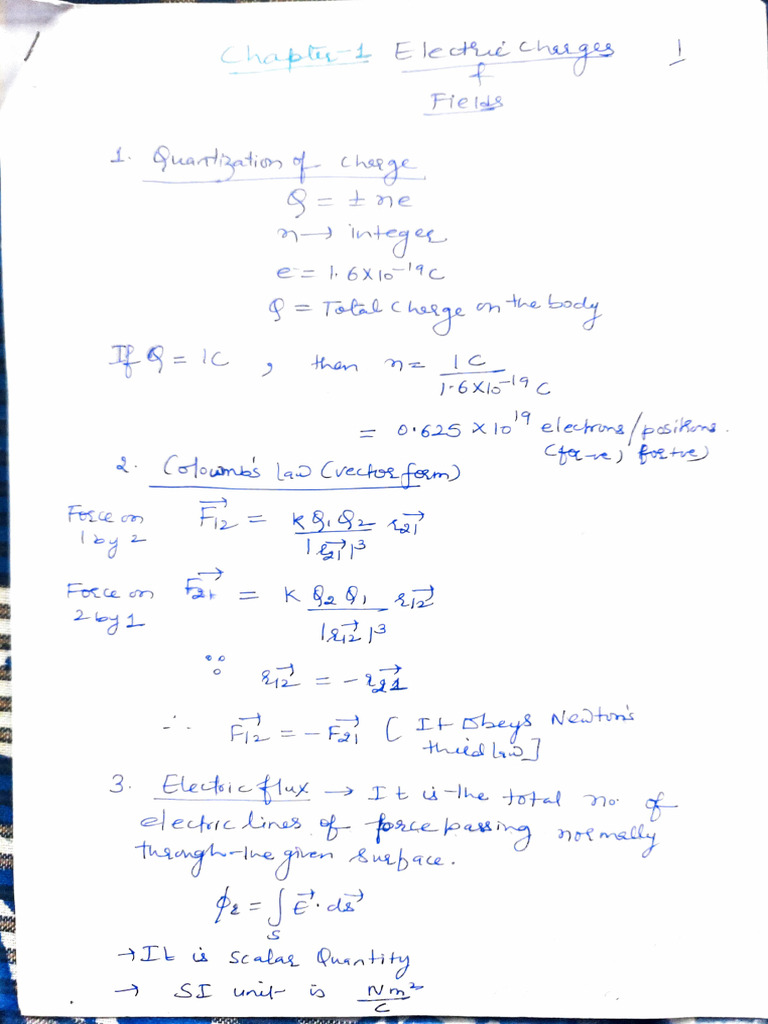 Chapter-1 Electric Charges 1
&
Fields
1. Quantization of charge
Q = ± ne
n → integer
e = 1.6×10⁻¹⁹C
Q = Total charge on the body
If Q = 1C , then n = 1C / 1.6×10⁻¹⁹ C
= 0.625 × 10¹⁹ electrons/positrons.
(for -ve) for +ve)
2. Coloumb's law (vector form)
Force on 1 by 2 F₁₂⃗ = K Q₁ Q₂ / |r₂₁⃗|³ r₂₁⃗
Force on 2 by 1 F₂₁⃗ = K Q₂ Q₁ / |r₁₂⃗|³ r₁₂⃗
∵ r₁₂⃗ = - r₂₁⃗
∴ F₁₂⃗ = - F₂₁⃗ [ It Obeys Newton's
third law]
3. Electric flux → It is the total no. of
electric lines of force passing normally
through the given surface.
ϕE = ∫S E⃗ . ds⃗
→ It is scalar Quantity
→ SI unit is Nm²/C